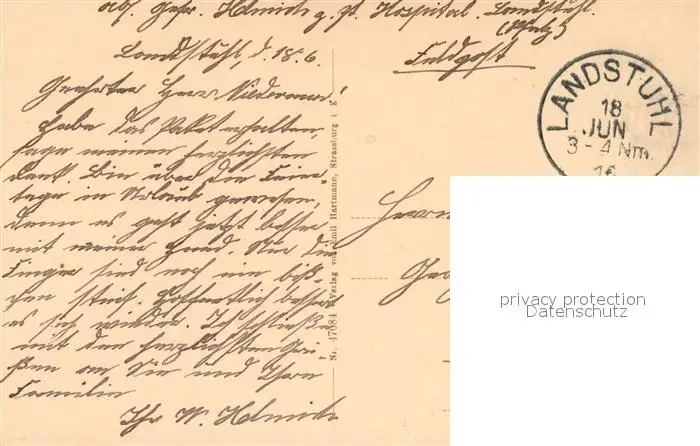 Abs. Gefr. Helmich z. Zt. Hospital. Landstuhl.
(Pfalz)
Feldpost
Landstuhl, d. 18.6
Geehrter Herr Niederma
habe das Paket erhalten,
sage meinen herzlichsten
Dank. Bin über die
tage in Urlaub gewesen,
denn es geht jetzt besser
mit meiner Hand. Nur die
Finger sind noch ein biß-
chen steif. Hoffentlich bessert
es sich wieder. Ich schließe
mit den herzlichsten Grü-
ßen an Sie und Ihre
Familie
Ihr W. Helmich
Nr. 17084 Verlag von Emil Hartmann, Strassburg i. E.
LANDSTUHL
18
JUN
3-4 Nm.
16
Herrn
privacy protection
Datenschutz